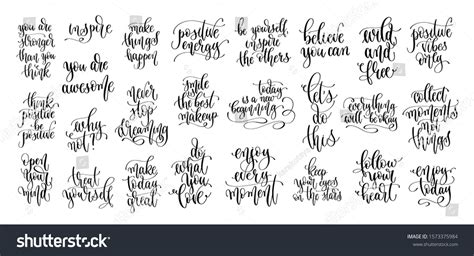 you are
stronger
than you
think
inspire
make
things
happen
positive
energy
be yourself,
inspire
the others
believe
you can
wild
and
free
positive
vibes
only
you are
awesome
think
positive be
positive
why
not?
never
stop
dreaming
smile
the best
makeup
today
is a new
beginning
let's
do
this
everything
will be okay
collect
moments
not
things
open
your
mind
treat
yourself
make
today
great
do
what
you
love
enjoy
every
moment
keep
your eyes
on the stars
follow
your
heart
enjoy
today
shutterstock
IMAGE ID: 1573375984
www.shutterstock.com